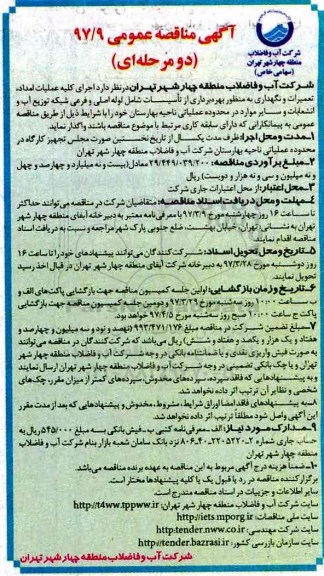 آگهی مناقصه عمومی ۹۷/۹
(دو مرحله‌ای)
شرکت آب و فاضلاب
منطقه چهار شهر تهران
(سهامی خاص)
شرکت آب و فاضلاب منطقه چهار شهر تهران، در نظر دارد اجرای کلیه عملیات امداد،
تعمیرات و نگهداری به منظور بهره‌برداری از تأسیسات شامل لوله اصلی و فرعی شبکه توزیع آب و
انشعابات و سایر موارد در محدوده عملیاتی ناحیه بهارستان خود را با شرایط ذیل از طریق مناقصه
عمومی به پیمانکارانی که دارای سابقه کاری مرتبط با موضوع مناقصه باشند واگذار نماید.
۱ـ مدت و محل اجرا: ظرف مدت یکسال از تاریخ نخستین صورت مجلس تجهیز کارگاه در
محدوده عملیاتی ناحیه بهارستان شرکت آب و فاضلاب منطقه چهار شهر تهران
۲ـ مبلغ برآوردی مناقصه: ۲۹/۴۴۹/۰۳۹/۲۰۰ معادل (بیست و نه میلیارد و چهارصد و چهل
و نه میلیون و سی و نه هزار و دویست) ریال
۳ـ محل اعتبار: از محل اعتبارات جاری شرکت
۴ـ مهلت و محل دریافت اسناد مناقصه: متقاضیان شرکت در مناقصه می‌توانند حداکثر
تا ساعت ۱۶ روز چهارشنبه مورخ ۹۷/۳/۹ با معرفی‌نامه معتبر به دبیرخانه آبفای منطقه چهار شهر
تهران به نشانی: تهران، خیابان بهشت، ضلع جنوبی پارک شهر مراجعه و نسبت به دریافت اسناد
مناقصه اقدام نمایند.
۵ـ تاریخ و محل تحویل اسناد: شرکت کنندگان می‌توانند پیشنهادهای خود را تا ساعت ۱۶
روز دوشنبه مورخ ۹۷/۳/۲۸ به دبیرخانه شرکت آبفای منطقه چهار شهر تهران در قبال اخذ رسید
تحویل نمایند.
۶ـ تاریخ و زمان بازگشایی: اولین جلسه کمیسیون مناقصه جهت بازگشایی پاکت‌های الف و
ب ساعت ۱۰:۰۰ روز سه‌شنبه مورخ ۹۷/۳/۲۹ و دومین جلسه کمیسیون مناقصه جهت بازگشایی
پاکت ج ساعت ۱۰:۰۰ صبح روز سه‌شنبه مورخ ۹۷/۴/۵ خواهد بود.
۷ـ مبلغ تضمین شرکت در مناقصه مبلغ ۹۹۳/۴۷۱/۱۷۶ (نهصد و نود و سه میلیون و چهارصد و
هفتاد و یک هزار و یکصد و هفتاد و شش) ریال می‌باشد که شرکت کنندگان در مناقصه می‌توانند
به صورت فیش واریزی نقدی و یا ضمانتنامه بانکی در وجه شرکت آب و فاضلاب منطقه چهار شهر
تهران و یا چک بانکی تضمینی در وجه شرکت آب و فاضلاب منطقه چهار شهر تهران ارسال نمایند
و به پیشنهادهایی که فاقد سپرده، سپرده‌های مخدوش، سپرده‌های کمتر از میزان مقرر، چک‌های
شخصی و نظایر آن ترتیب اثر داده نخواهد شد.
۸ـ به پیشنهادهای فاقد امضا اوراق شرایط، مشروط، مخدوش و پیشنهادهایی که بعد از مدت مقرر
این آگهی واصل شود مطلقاً ترتیب اثر داده نخواهد شد.
۹ـ مدارک مورد نیاز: الف ـ معرفی‌نامه کتبی ب ـ فیش بانکی به مبلغ ۵۴۵/۰۰۰ ریال به
حساب جاری شماره نزد بانک سامان شعبه بازار بنام شرکت آب و فاضلاب
منطقه چهار شهر تهران
۱۰ـ ضمناً هزینه درج آگهی مربوط به این مناقصه به عهده برنده مناقصه می‌باشد.
برگزارکننده مناقصه در رد یا قبول یک یا کلیه پیشنهادها مختار است.
سایر اطلاعات و جزییات در اسناد مناقصه مندرج است.
سایت شرکت آب و فاضلاب منطقه چهار شهر تهران: http://t4ww.tppww.ir
سایت ملی مناقصات: http://iets.mporg.ir
سایت شرکت مهندسی: http://tender.nww.co.ir
سایت سازمان بازرسی کشور: http://tender.bazrasi.ir
شرکت آب و فاضلاب منطقه چهار شهر تهران